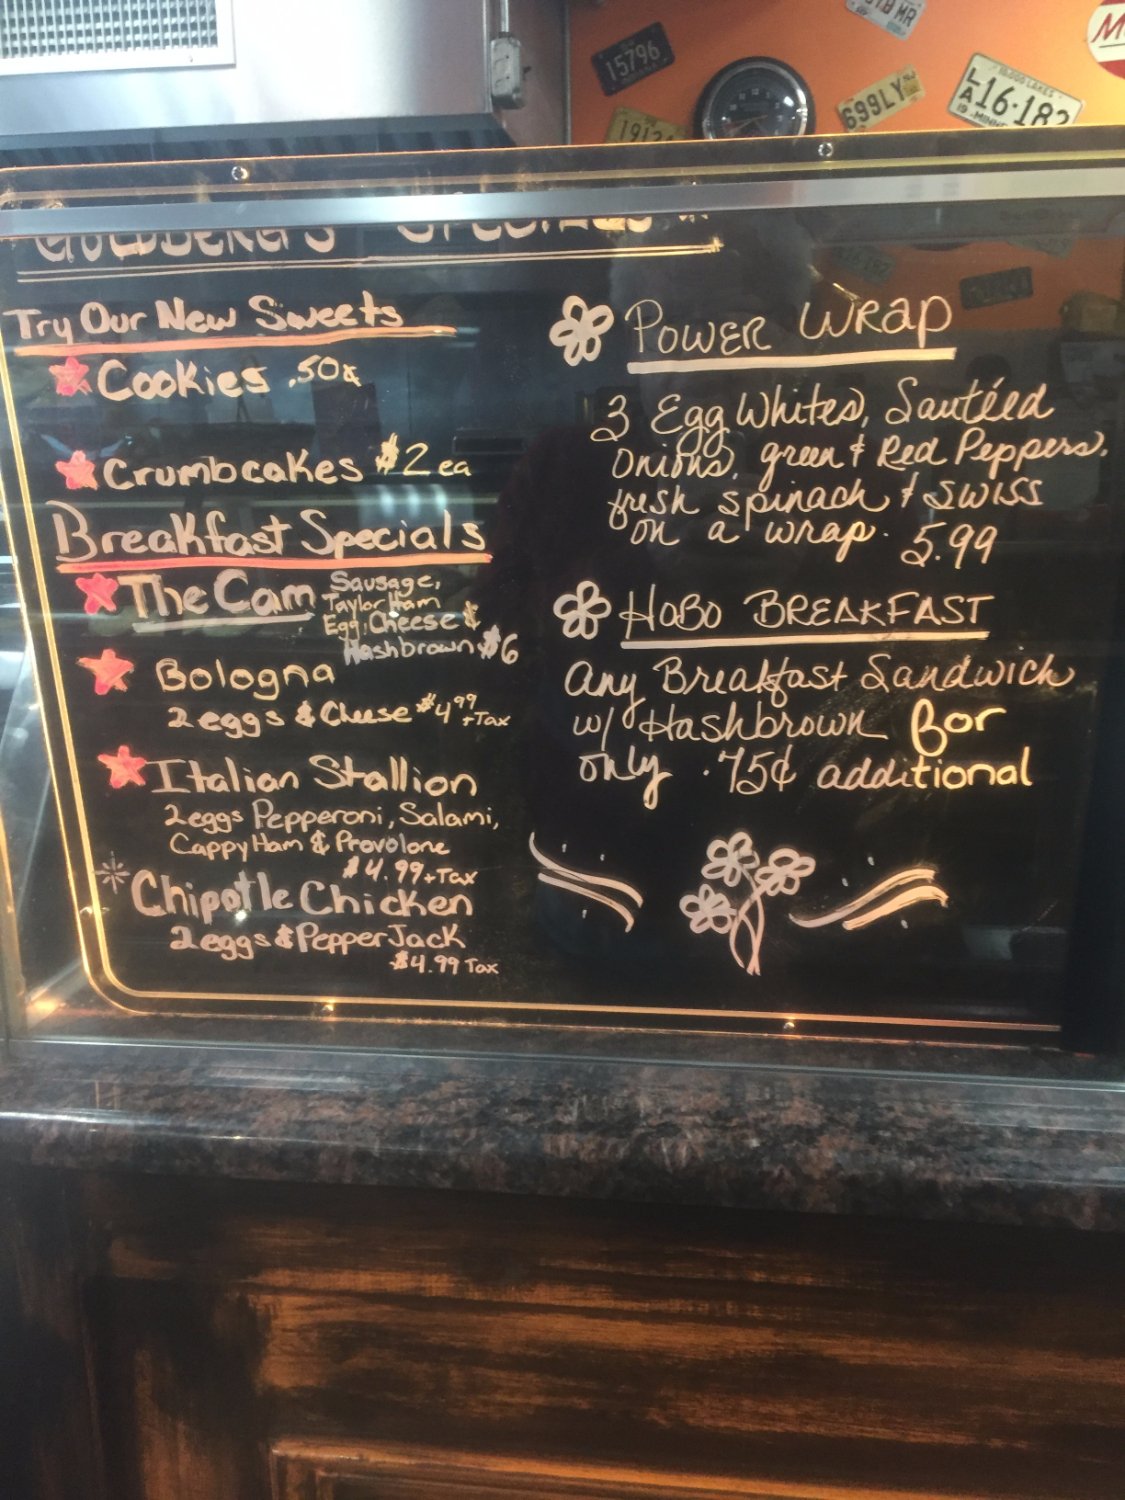 15796
699LY
10,000 LAKES
LA 16·182
19 MINN
GOLDBERG'S SPECIALS
Try Our New Sweets
Cookies .50¢
Crumbcakes $2 ea
Breakfast Specials
The Cam Sausage,
Taylor Ham
Egg, Cheese &
Hashbrown $6
Bologna
2 eggs & Cheese $4.99
+Tax
Italian Stallion
2 eggs Pepperoni, Salami,
Cappy Ham & Provolone
$4.99 +Tax
Chipotle Chicken
2 eggs & Pepper Jack
$4.99 Tax
POWER WRAP
3 Egg Whites, Sautéed
Onions, green & Red Peppers,
fresh spinach & SWISS
on a wrap. 5.99
HOBO BREAKFAST
Any Breakfast Sandwich
w/ Hashbrown for
only .75¢ additional